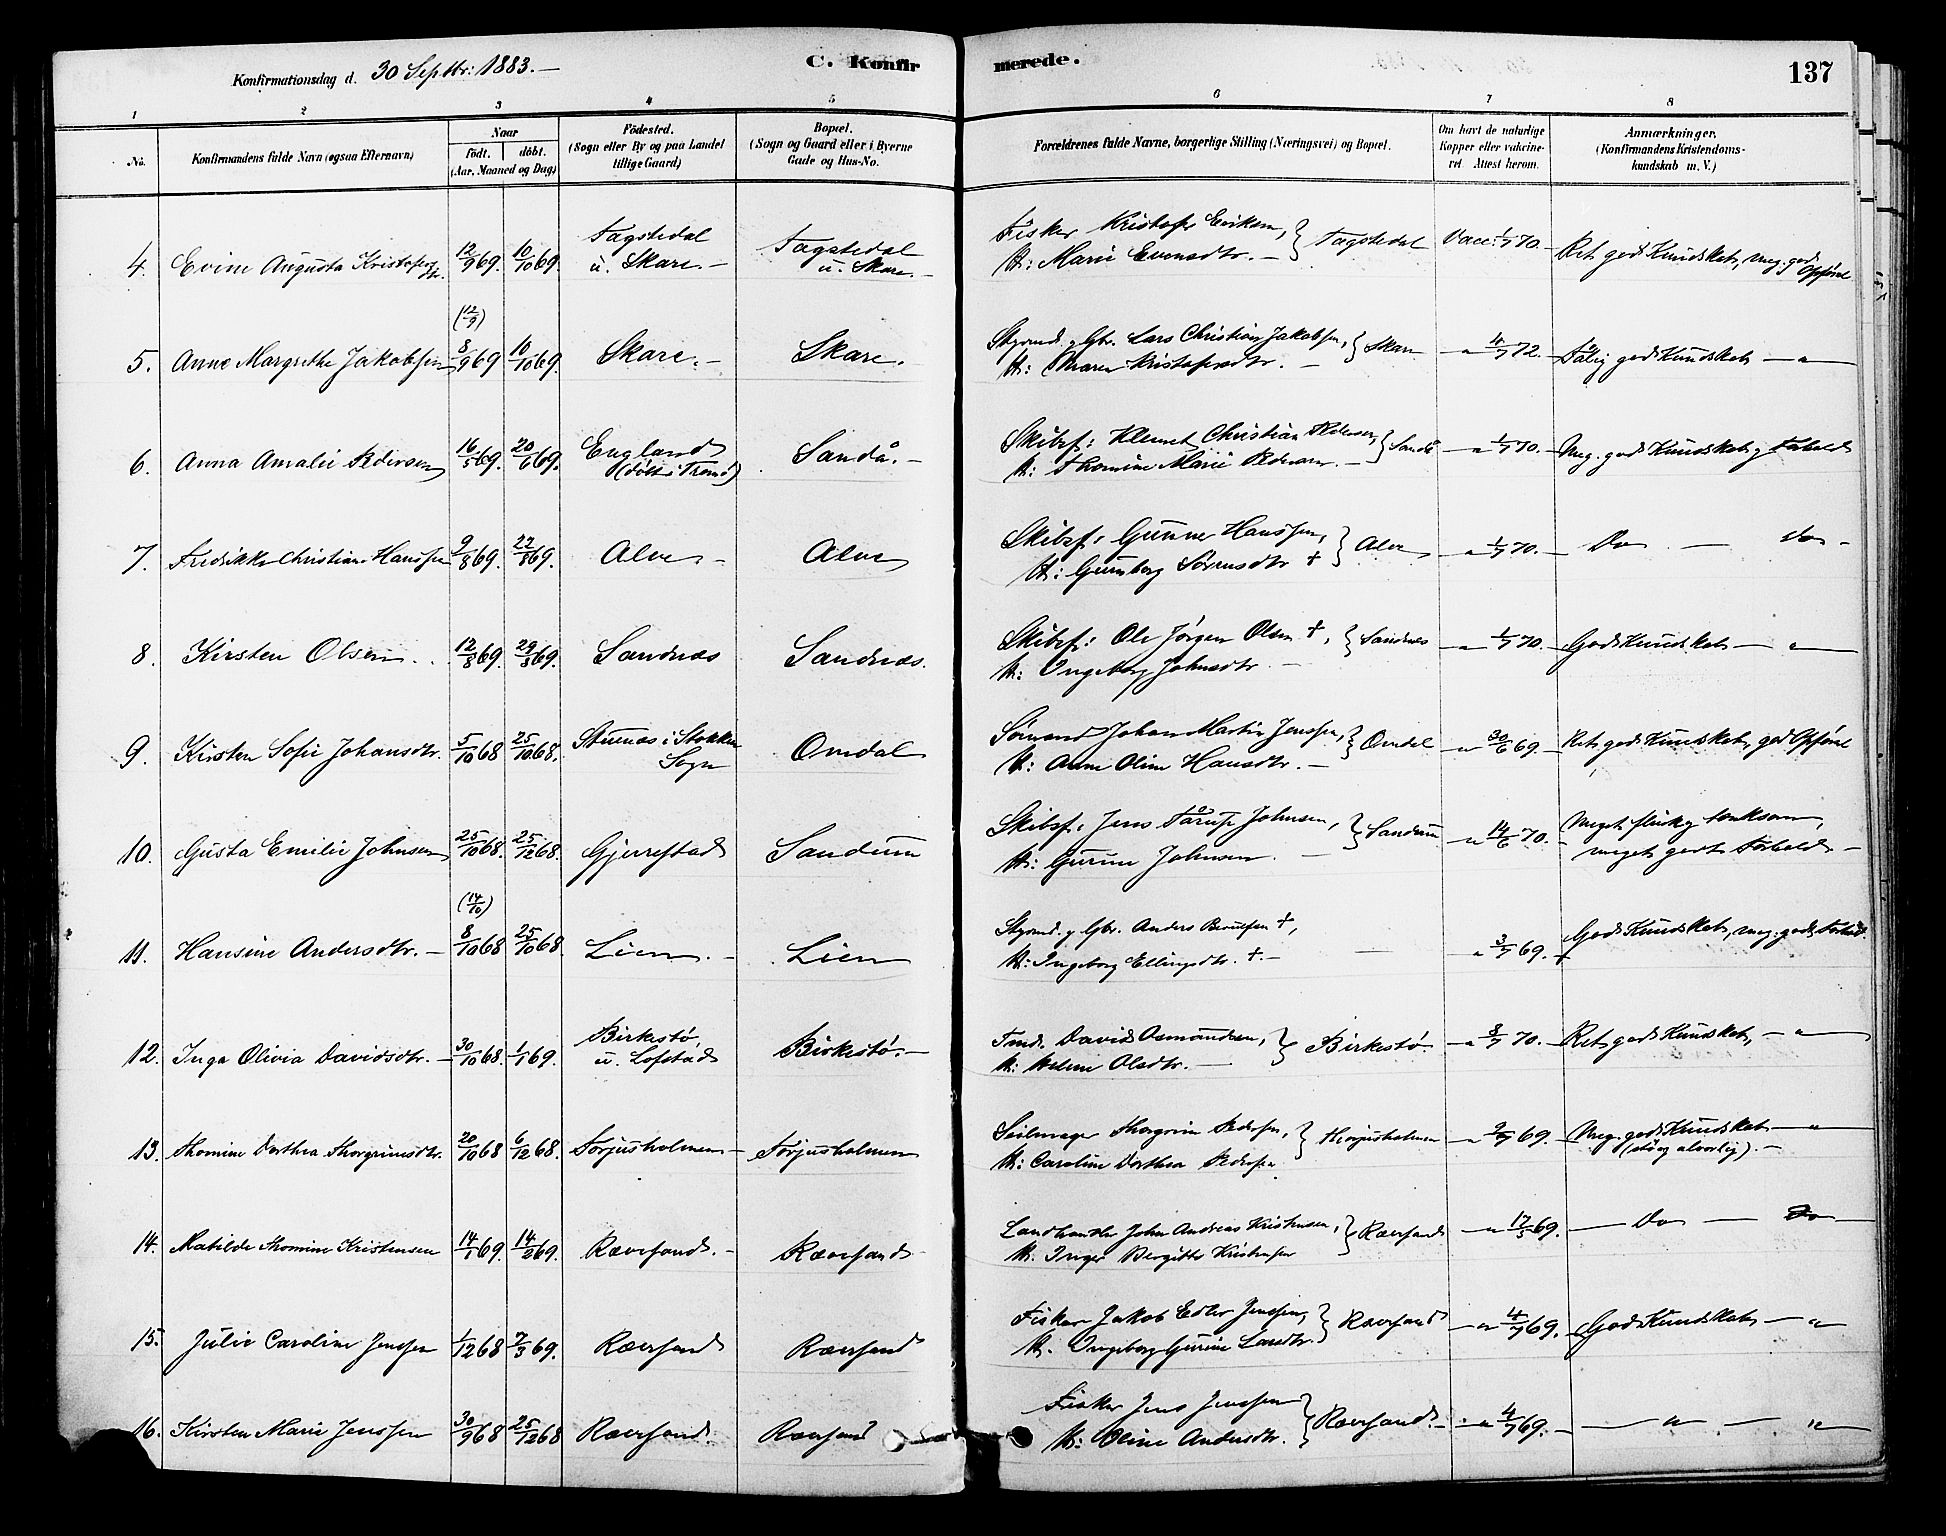 Konfirmationsdag d. 30 Septbr: 1883.—
C. Konfirmerede.
137
1 2 3 4 5 6 7 8
No.
Konfirmandens fulde Navn (ogsaa Efternavn)
Naar
födt. döbt.
(Aar, Maaned og Dag)
Födested.
(Sogn eller By og paa Landet tillige Gaard)
Bopæl.
(Sogn og Gaard eller i Byerne Gade og Hus-No.
Forældrenes fulde Navne, borgerlige Stilling (Næringsvei) og Bopæl.
Om havt de naturlige Kopper eller vaccineret. Attest herom.
Anmærkninger.
(Konfirmandens Kristendomskundskab m. V.)
4. Evine Augusta Kristofersen 12/9 69. 10/10 69. Tagstedal u. Skare — Tagstedal u. Skare — Fisker Kristofer Eriksen, } Tagstedal Vacc: 1/7 70. — Ret god Kundskab, meg. god Opførsel
H: Marie Evensdtr. —
5. Anne Margrethe Jakobsen (12/9) 8/9 69 10/10 69. Skare. — Skare. Styrmd. & Gbr. Lars Christian Jakobsen, } Skare — " 4/7 72. — Tålig god Kundskab — "
H: Maren Kristofersdtr. —
6. Anna Amalie Pedersen 16/5 69. 20/6 69. England (døbt i Tromø) Sandå. — Skibsf: Klemet Christian Pedersen, } Sandå — " 1/7 70. — Meg. god Kundskab & Forhold
H: Thomine Marie Pedersen. —
7. Fredrikke Christiane Hanssen 9/8 69. 22/8 69. Alve. — Alve Skibsf: Gunner Hanssen, } Alve — " 1/7 70. — Do — Do —
H: Gunborg Sørensdtr †
8. Kirsten Olsen. 12/8 69. 29/8 69. Sandnæs Sandnæs. Skibsf: Ole Jørgen Olsen †, } Sandnæs — " 1/7 70. — God Kundskab — "
H: Ingeborg Johnsdtr. —
9. Kirsten Sofie Johansdtr. 5/10 68 25/10 68. Stuenæs i Stokken Sogn Omdal Sømand Johan Martin Jenssen, } Omdal — " 30/6 69. — Ret god Kundskab, god Opførsel
H: Anne Oline Hansdtr. —
10. Gusta Emilie Johnsen 25/10 68. 25/12 68. Gjerrestad Sandum Skibsf: Jens Tårup Johnsen, } Sandum — " 14/6 70. — Meget flink & tænksom, meget godt Forhold —
H: Gurine Johnsen. —
11. Hansine Andersdtr. — (14/10) 8/10 68 25/10 68 Lien. — Lien Styrmd. & Gbr. Anders Berntsen †, — " 3/7 69. — God Kundskab, meg. godt Forhold.
H: Ingeborg Ellingsdtr. †. —
12. Inga Olivia Davidsdtr. — 30/10 68. 1/1 69. Birkestø, u. Lofstad Birkestø. — Tmd. David Osmundsen, } Birkestø. — " 8/7 70. — Ret god Kundskab, — "
H: Helene Olsdtr. —
13. Thomine Dorthea Thorgrimsdtr. 20/10 68 6/12 68. Torjusholmen — Torjusholmen Seilmager Thorgrim Pedersen, } Thorjusholmen — " 2/7 69. — Meg. god Kundskab — "
H: Caroline Dorthea Pedersen (stø og alvorlig). —
14. Matilde Thomine Kristensen 14/1 69. 14/2 69. Rævesand. — Rævesand Landhandler John Andreas Kristensen, } Rævesand — " 17/5 69. — Do — Do
H. Inger Bergitte Kristensen
15. Julie Caroline Jenssen 1/12 68 7/3 69. Rævesand Rævesand Fisker Jakob Edler Jenssen, } Rævesand — " 4/7 69. — God Kundskab — "
H. Ingeborg Gurine Larsdtr.
16. Kirsten Marie Jenssen 30/9 68 25/12 68 Rævesand. Rævesand Fisker Jens Jenssen } Rævesand. — " 4/7 69. — " — "
H: Oline Andersdtr.